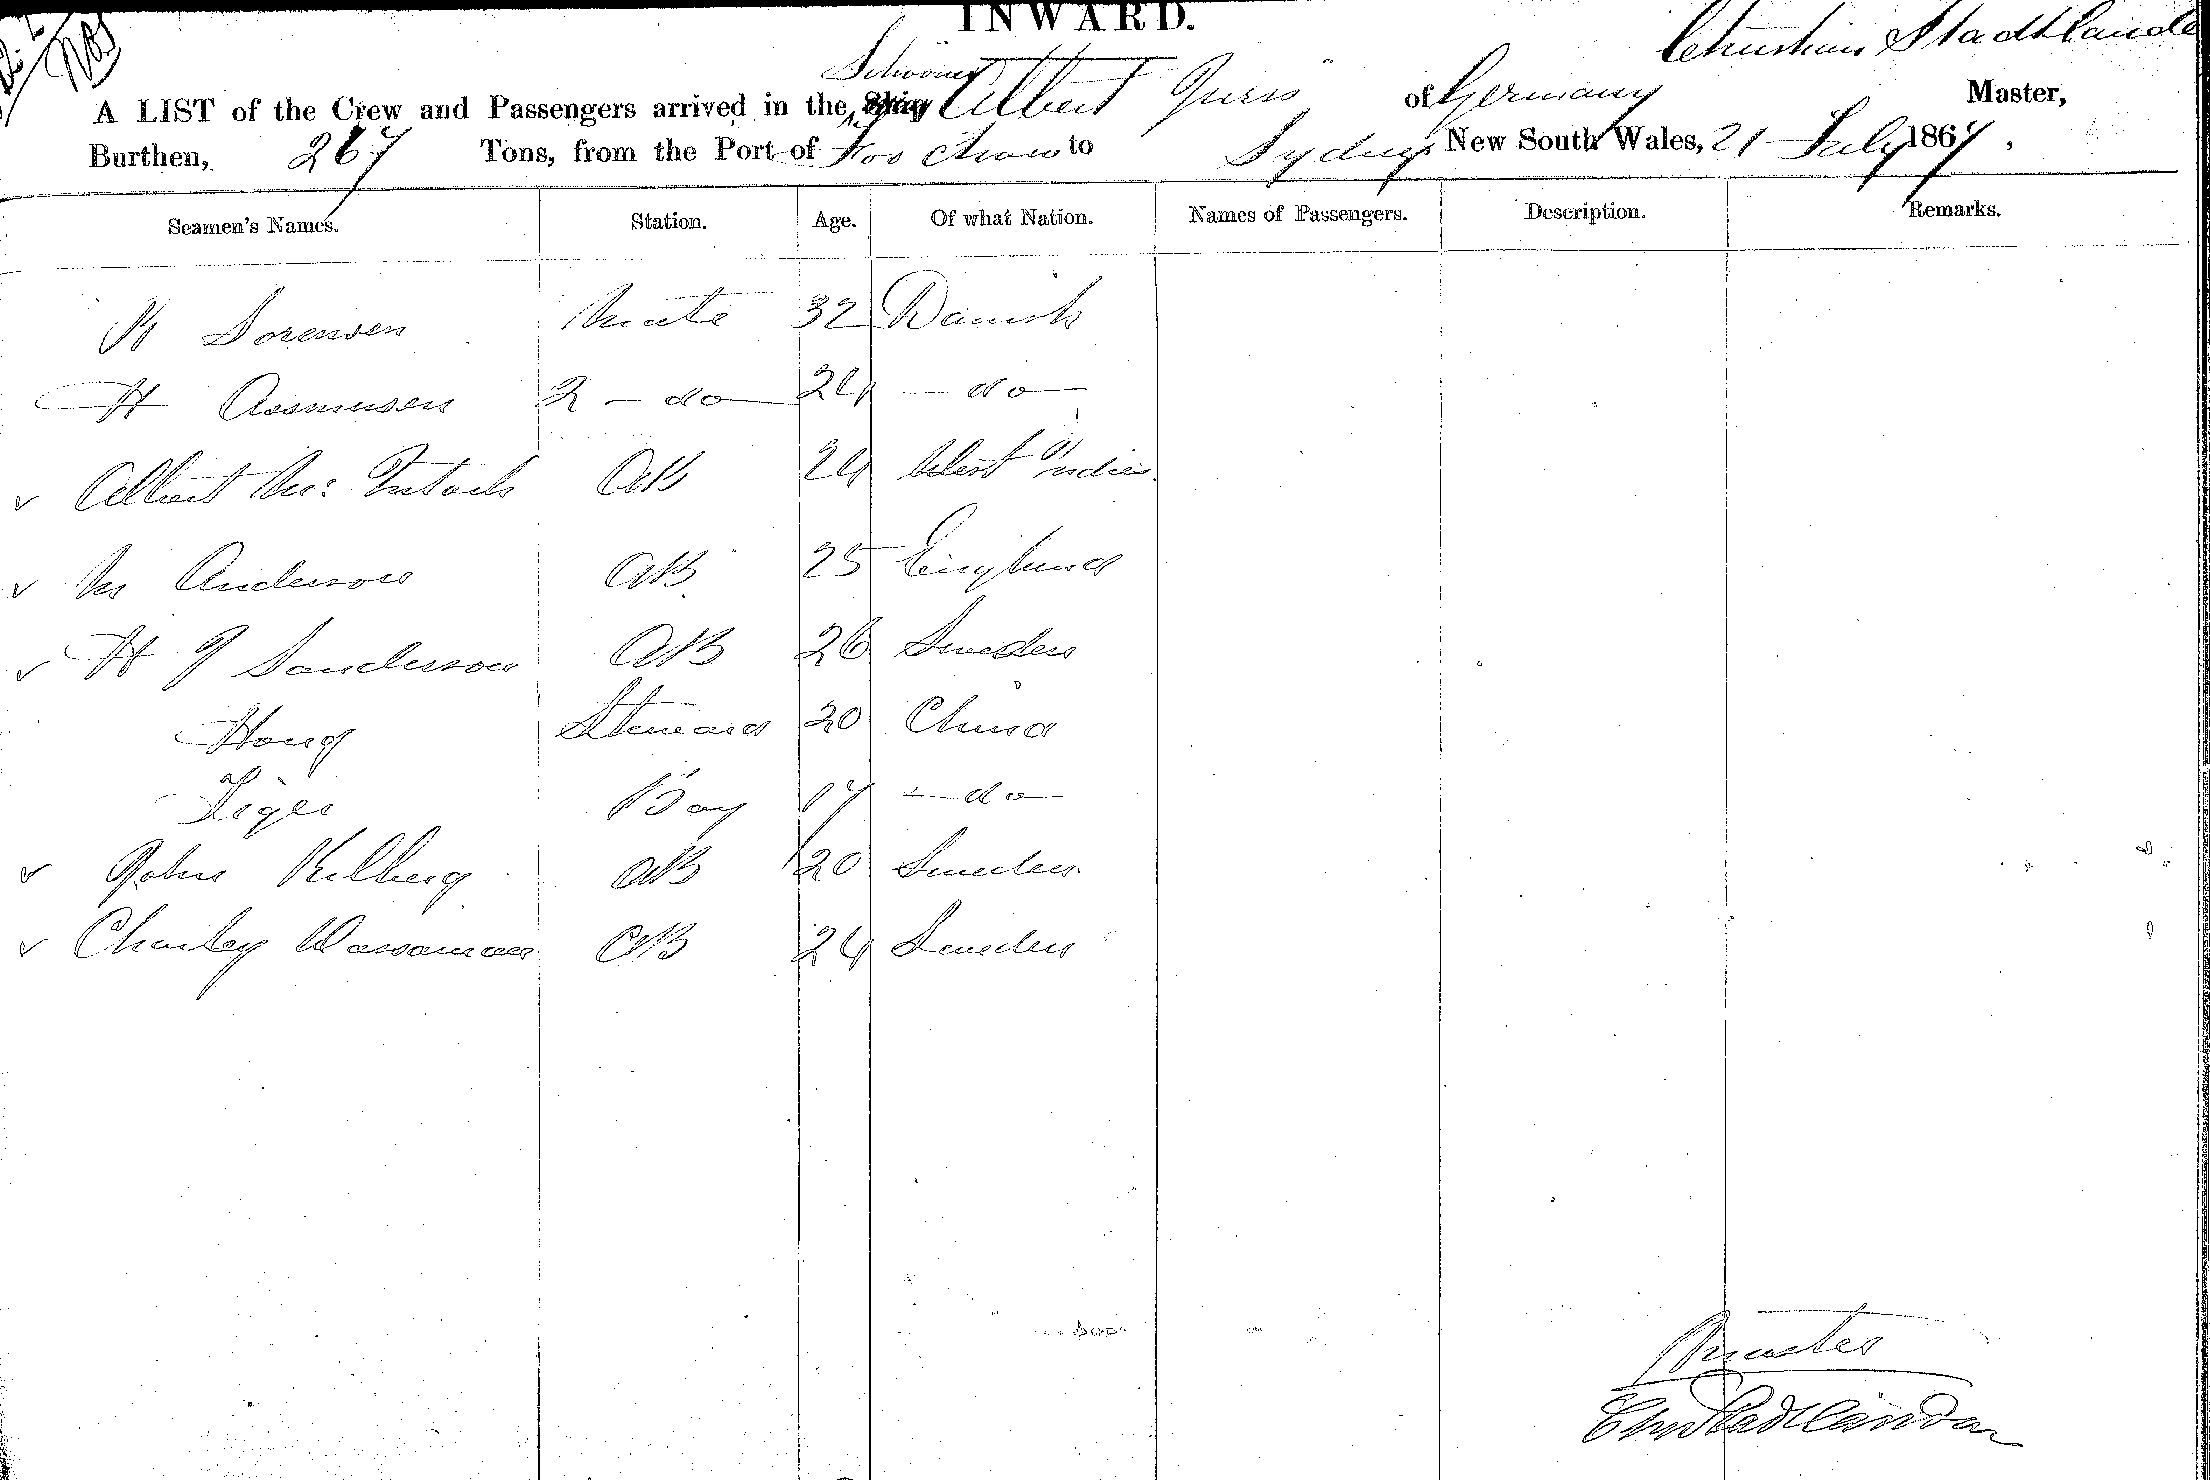 INWARD.
Christian Stadtlander
Schooner
A LIST of the Crew and Passengers arrived in the Ship Albert Juriss of Germany Master,
Burthen, 267 Tons, from the Port of Foo Chow to Sydney New South Wales, 21 July 1867.
Seamen's Names. Station. Age. Of what Nation. Names of Passengers. Description. Remarks.
Sorensen Mate 32 Danish
H Assmusen 2 - do 24 - do -
Albert Mc: Intosh AB 24 West Indies
M Anderson AB 25 England
H J Sanderson AB 26 Sweden
Hong Steward 20 China
Boy 17 - do -
John AB 20 Sweden
Charley AB 24 Sweden
Master
Chr Stadtlander